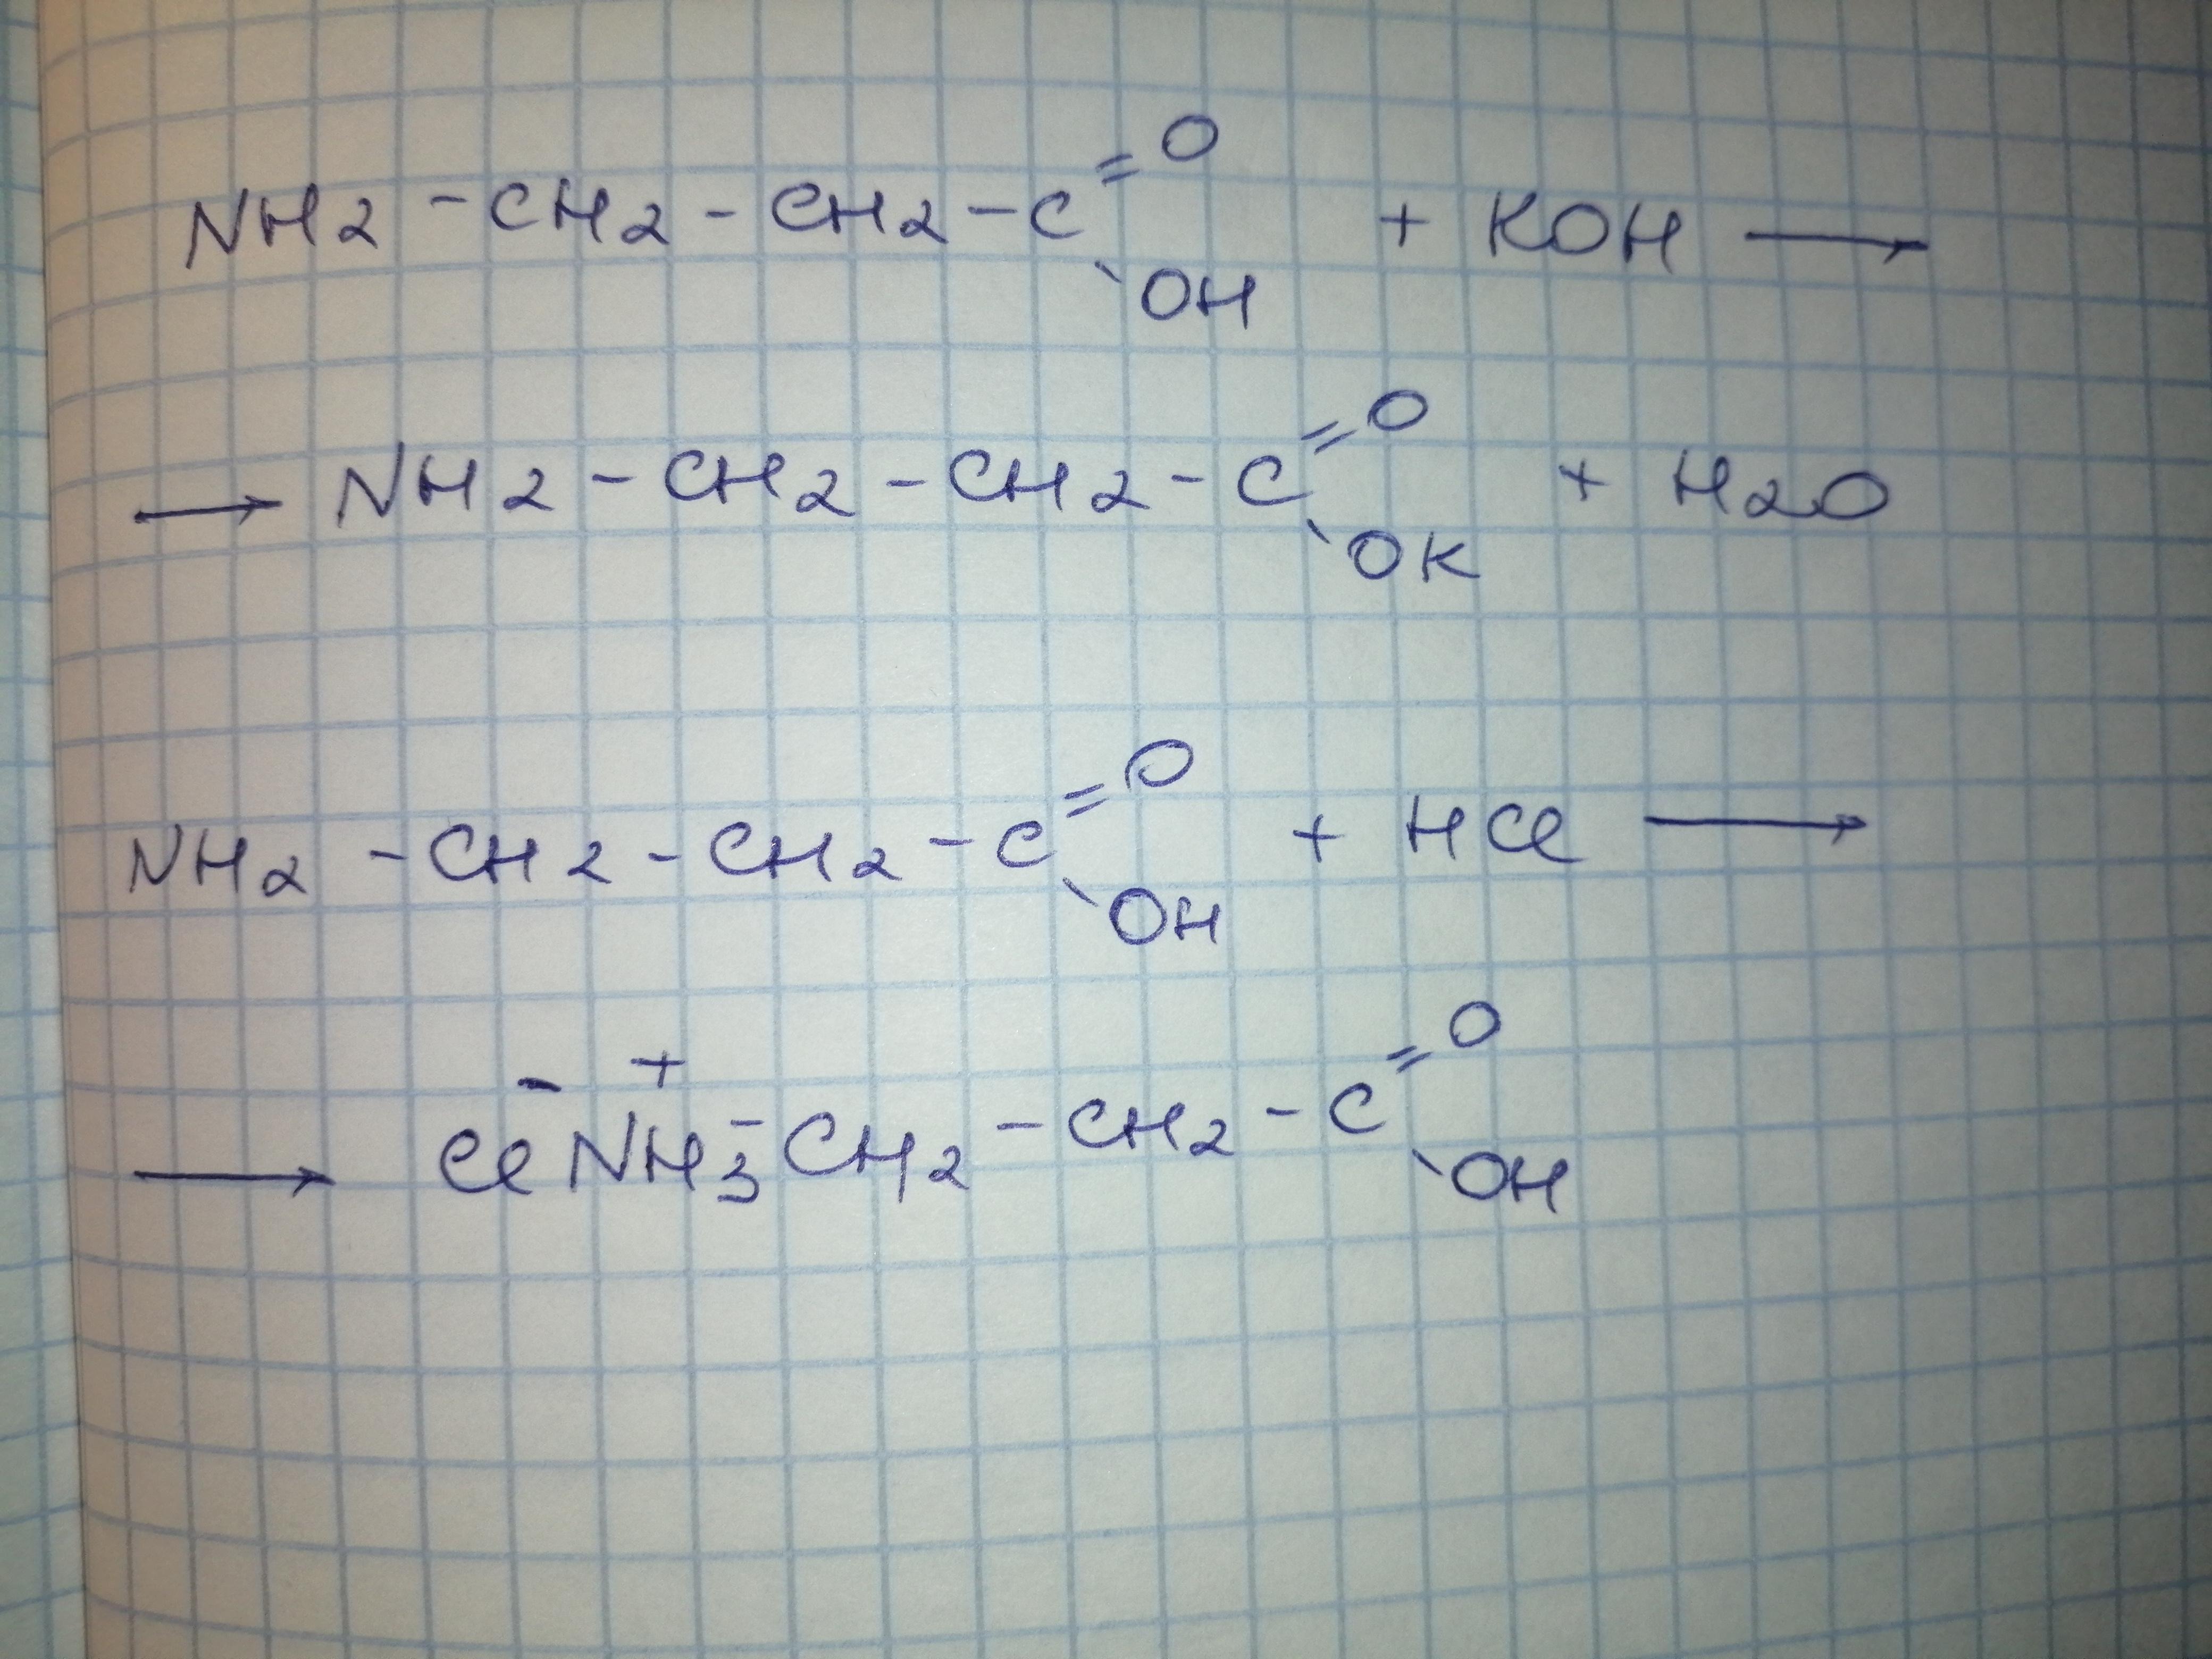 NH2 - CH2 - CH2 - C =O \OH + KOH →
→ NH2 - CH2 - CH2 - C =O \OK + H2O
NH2 - CH2 - CH2 - C =O \OH + HCl →
→ Cl⁻ NH3⁺ - CH2 - CH2 - C =O \OH